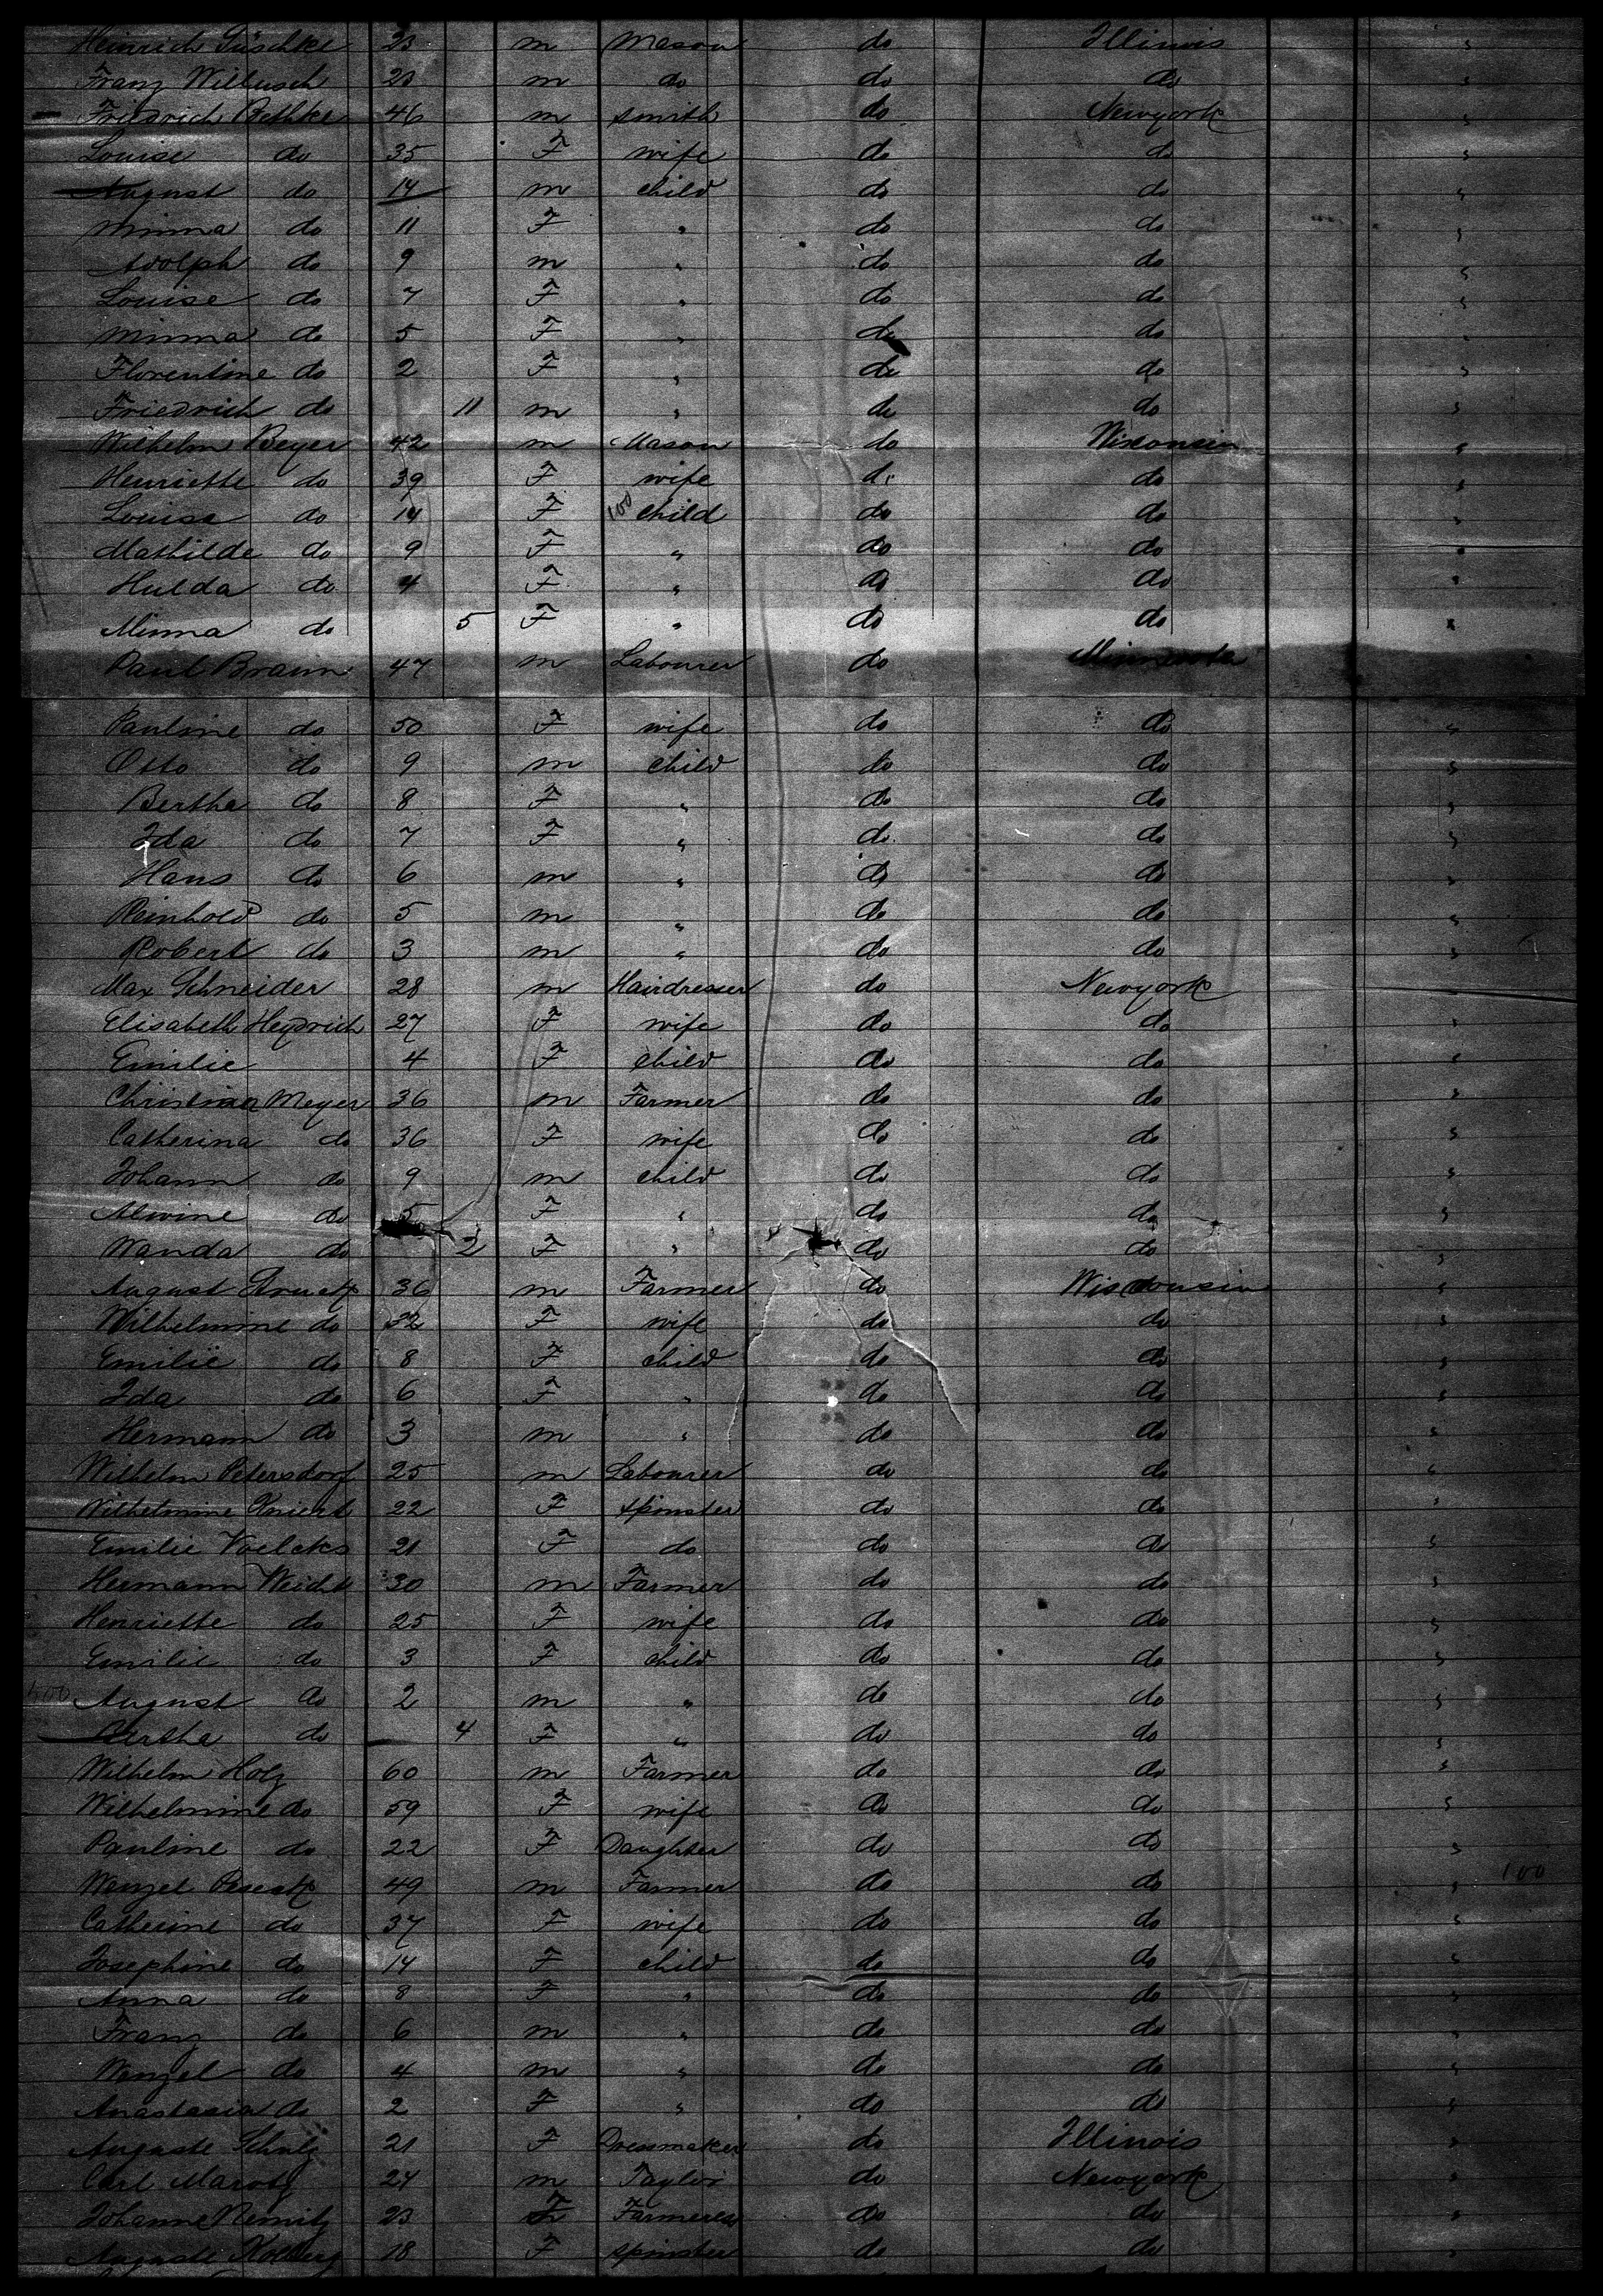 Heinrich Püschke 23 m Mason do Illinois
Franz Wilbusch 23 m do do do
Friedrich Bethke 46 m smith do Newyork
Louise do 35 F wife do do
August do 14 m child do do
Minna do 11 F " do do
Adolph do 9 m " do do
Louise do 7 F " do do
Minna do 5 F " do do
Florentine do 2 F " do do
Friedrich do 11 m " do do
Wilhelm Beyer 42 m Mason do Wisconsin
Henriette do 39 F wife do do
Louise do 14 F 100 child do do
Mathilde do 9 F " do do
Hulda do 4 F " do do
Minna do 5 F " do do
Paul Braun 47 m Labourer do Minnesota
Pauline do 50 F wife do do
Otto do 9 m child do do
Bertha do 8 F " do do
Ida do 7 F " do do
Hans do 6 m " do do
Reinhold do 5 m " do do
Robert do 3 m " do do
Max Schneider 28 m Hairdresser do Newyork
Elisabeth Heydrich 27 F wife do do
Emilie 4 F child do do
Christian Meyer 36 m Farmer do do
Catherina do 36 F wife do do
Johann do 9 m child do do
Alwine do 5 F " do do
Wanda do 2 F " do do
August 36 m Farmer do Wisconsin
Wilhelmine do 32 F wife do do
Emilie do 8 F child do do
Ida do 6 F " do do
Hermann do 3 m " do do
Wilhelm Petersdorf 25 m Labourer do do
Wilhelmine 22 F spinster do do
Emilie Voelcks 21 F do do do
Hermann Weicht 30 m Farmer do do
Henriette do 25 F wife do do
Emilie do 3 F child do do
August do 2 m " do do
Bertha do 4 F " do do
Wilhelm Holz 60 m Farmer do do
Wilhelmine do 59 F wife do do
Pauline do 22 F Daughter do do
Wenzel 49 m Farmer do do 100
Catherine do 37 F wife do do
Josephine do 14 F child do do
Anna do 8 F " do do
Franz do 6 m " do do
Wenzel do 4 m " do do
Anastasia do 2 F " do do
Auguste Schulz 21 F Dressmaker do Illinois
Carl Marotz 24 m Taylor do Newyork
Johanne Remitz 23 F Farmeress do do
Auguste Kolberg 18 F spinster do do